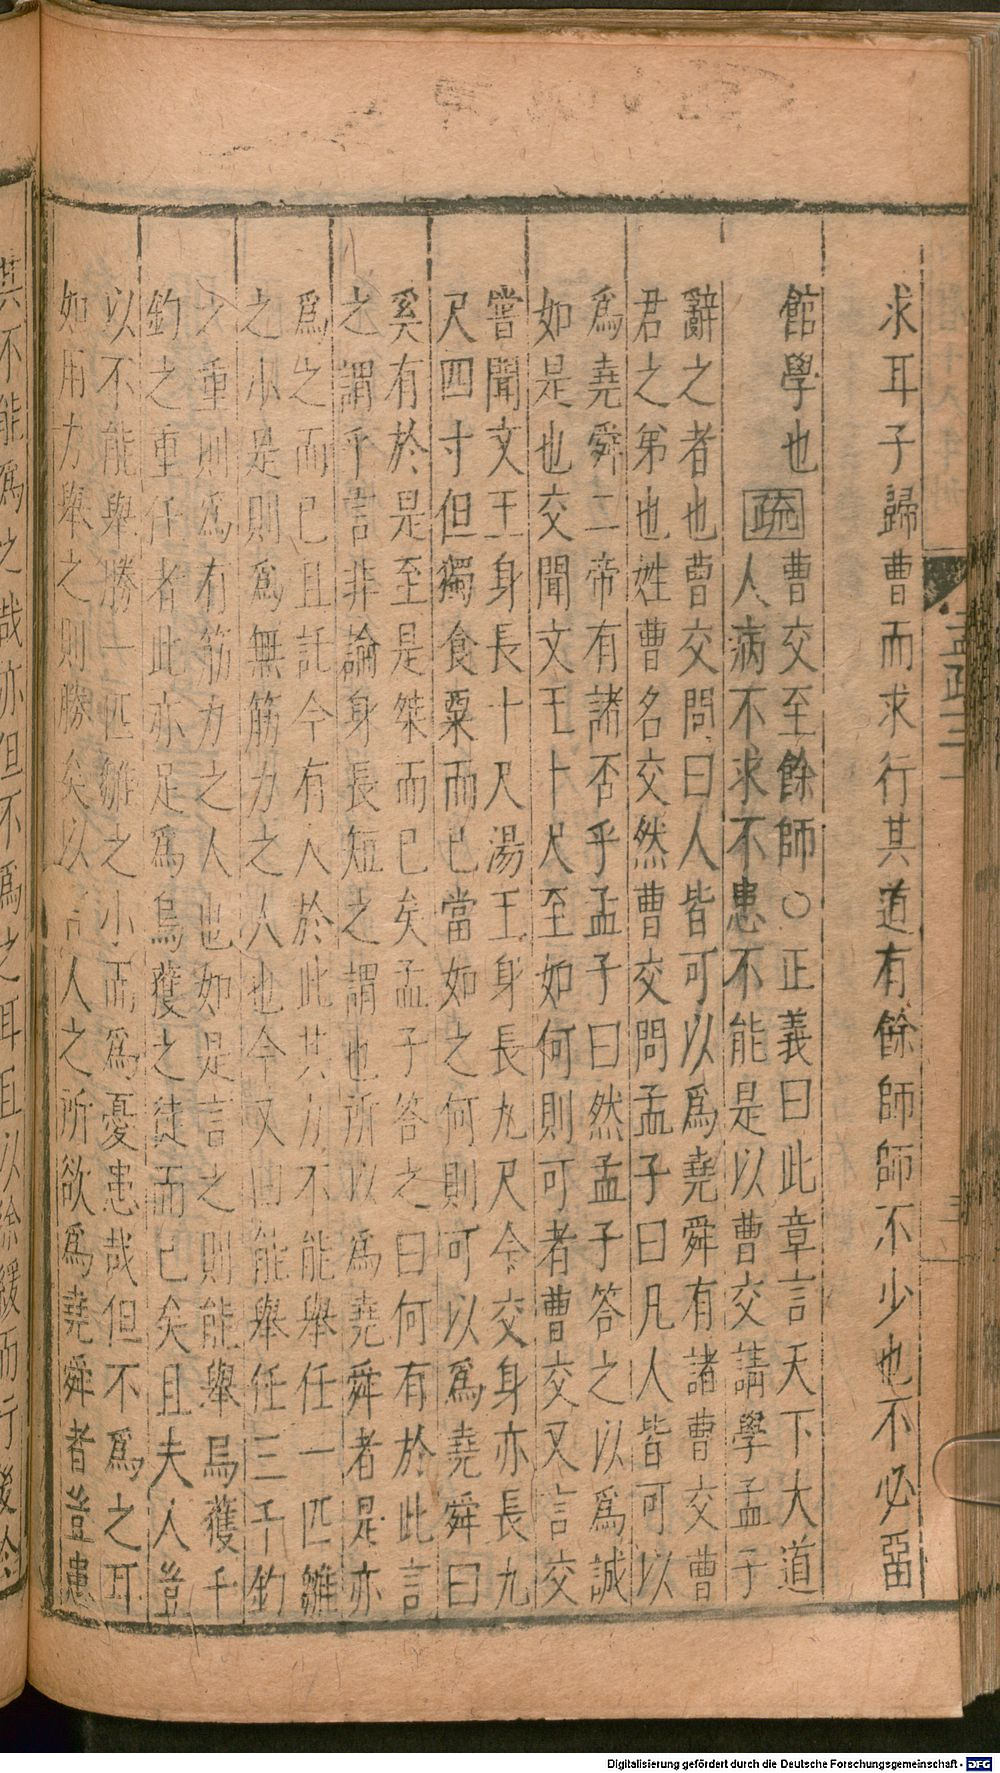 求耳子歸曹而求行其道有餘師師不少也不必畱
館學也
疏
曹交至餘師○正義曰此章言天下大道
人病不求不患不能是以曹交請學孟子
辭之者也曹交問曰人皆可以爲堯舜有諸曹交曹
君之弟也姓曹名交然曹交問孟子曰凡人皆可以
爲堯舜二帝有諸否乎孟子曰然孟子答之以爲誠
如是也交聞文王十尺至如何則可者曹交又言交
嘗聞文王身長十尺湯王身長九尺今交身亦長九
尺四寸但獨食粟而已當如之何則可以爲堯舜曰
奚有於是至是桀而已矣孟子答之曰何有於此言
之謂乎言非論身長短之謂也所以爲堯舜者是亦
爲之而已且託今有人於此其力不能舉任一匹雛
之小是則爲無筋力之人也今又曰能舉任三千鈞
之重則爲有筋力之人也如是言之則能舉烏獲千
鈞之重任者此亦足爲烏獲之徒而已矣且夫人豈
以不能舉勝一匹雛之小而爲憂患哉但不爲之耳
如用力舉之則勝矣以言人之所欲爲堯舜者豈患
其不能爲之哉亦但不爲之耳且以徐緩而行後於
孟疏
Digitalisierung gefördert durch die Deutsche Forschungsgemeinschaft - DFG